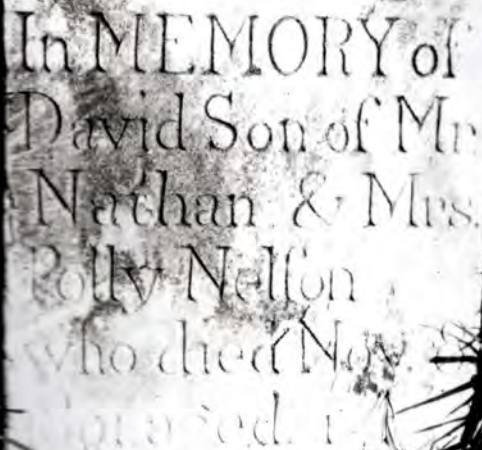 In MEMORY of
David Son of Mr
Nathan & Mrs.
Polly Nelſon
who died Nov.